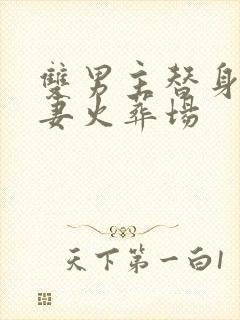 雙男主替身
妻火葬場
天下第一白1